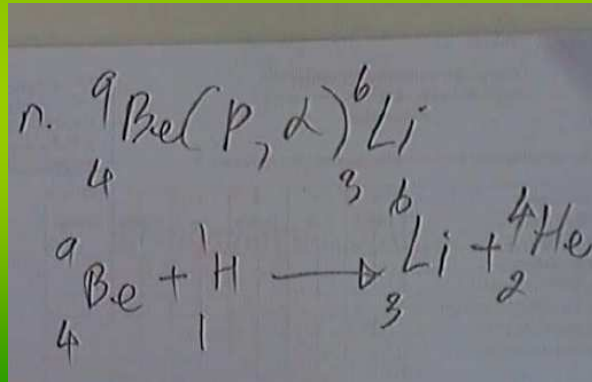 n. ⁹₄Be(p,α)⁶₃Li
⁹₄Be + ¹₁H → ⁶₃Li + ⁴₂He